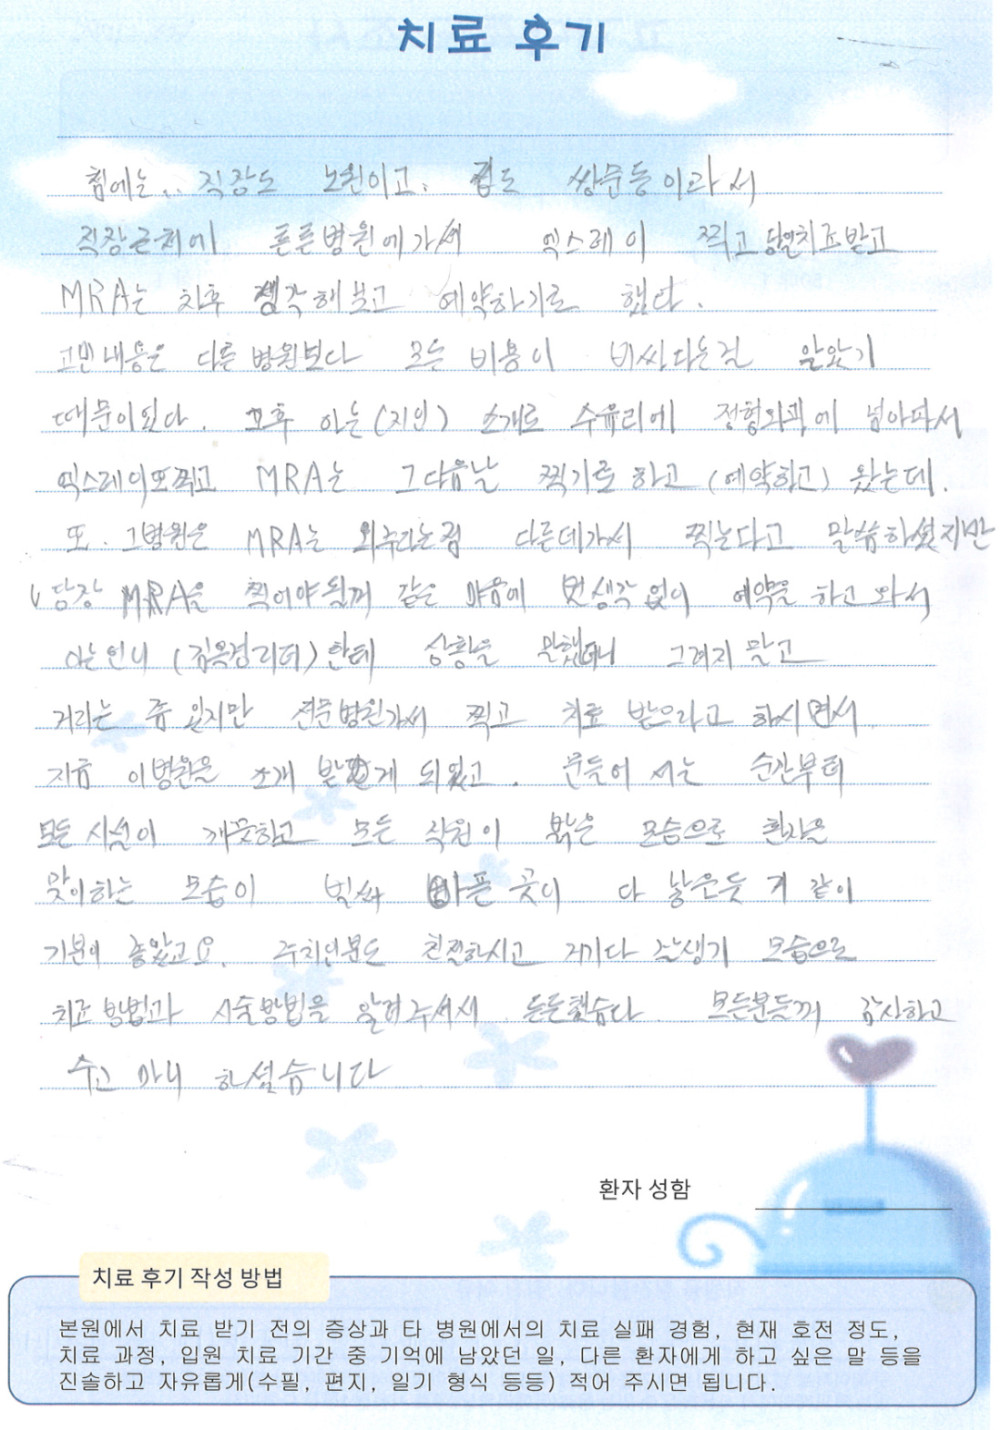 치료 후기
첨에는.. 직장도 노원이고. 집도 쌍문동이라서
직장근처에 튼튼병원에가서 엑스레이 찍고 열치료받고
MRA는 차후 생각해보고 예약하기로 했다.
고민내용은 다른 병원보다 모든 비용이 비싸다는걸 알았기
때문이였다. 그후 아는(지인) 소개로 수유리에 정형외과에 넘아파서
엑스레이또찍고 MRA는 그다음날 찍기로 하고 (예약하고) 왔는데.
또. 그병원은 MRA는 외주라는점 다른데가서 찍는다고 말씀하셨지만
당장 MRA을 찍어야될꺼 같은 마음에 별생각 없이 예약을 하고 와서
아는언니 한테 상황을 말했더니 그러지 말고
거리는 좀 있지만 전문병원가서 찍고 치료 받으라고 하시면서
지금 이병원을 소개 받게 되었고. 문들어 서는 순간부터
모든 시설이 깨끗하고 모든 직원이 밝은 모습으로 환자을
맞이하는 모습이 벌써 아픈 곳이 다 낳은듯 거 같이
기분이 좋았고요. 주치의분도 친절하시고 거기다 잘생기 모습으로
치료 방법과 시술방법을 알려주셔서 든든했습다. 모든분들께 감사하고
수고 마니 하셨습니다
환자 성함
치료 후기 작성 방법
본원에서 치료 받기 전의 증상과 타 병원에서의 치료 실패 경험, 현재 호전 정도,
치료 과정, 입원 치료 기간 중 기억에 남았던 일, 다른 환자에게 하고 싶은 말 등을
진솔하고 자유롭게(수필, 편지, 일기 형식 등등) 적어 주시면 됩니다.